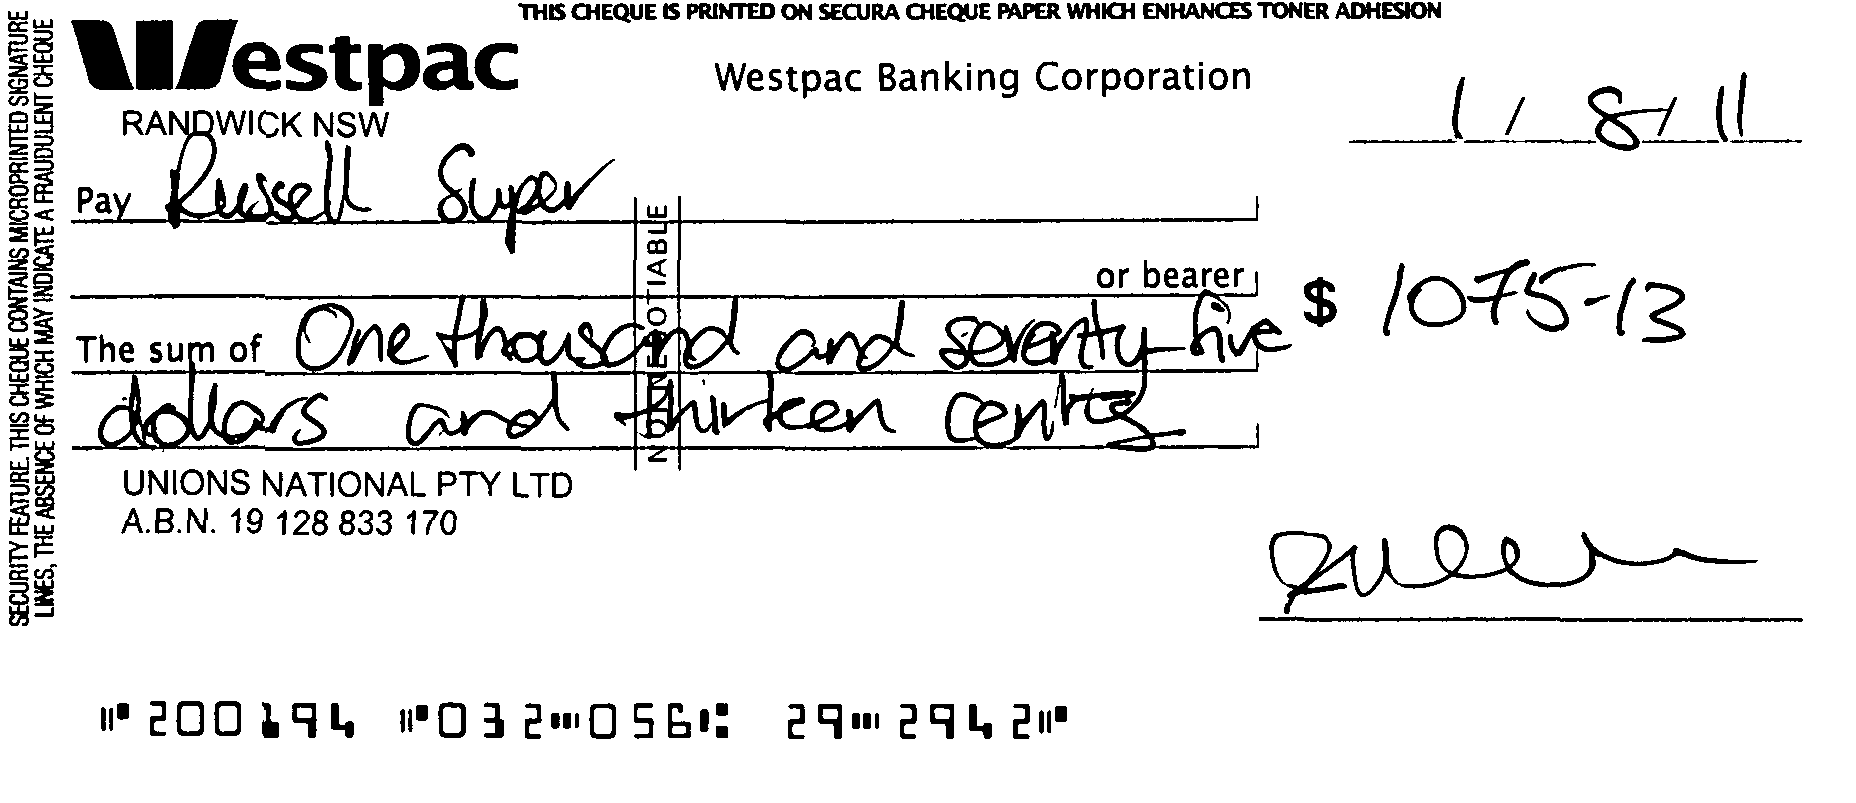 THIS CHEQUE IS PRINTED ON SECURA CHEQUE PAPER WHICH ENHANCES TONER ADHESION
SECURITY FEATURE. THIS CHEQUE CONTAINS MICROPRINTED SIGNATURE
LINES, THE ABSENCE OF WHICH MAY INDICATE A FRAUDULENT CHEQUE
Westpac
Westpac Banking Corporation
RANDWICK NSW
1 / 8 / 11
Pay Russell Super
NOT NEGOTIABLE
or bearer
$ 1075-13
The sum of One thousand and seventy-five
dollars and thirteen cents
UNIONS NATIONAL PTY LTD
A.B.N. 19 128 833 170
⑈200194 ⑈032⑉056⑆ 29⑉2942⑈